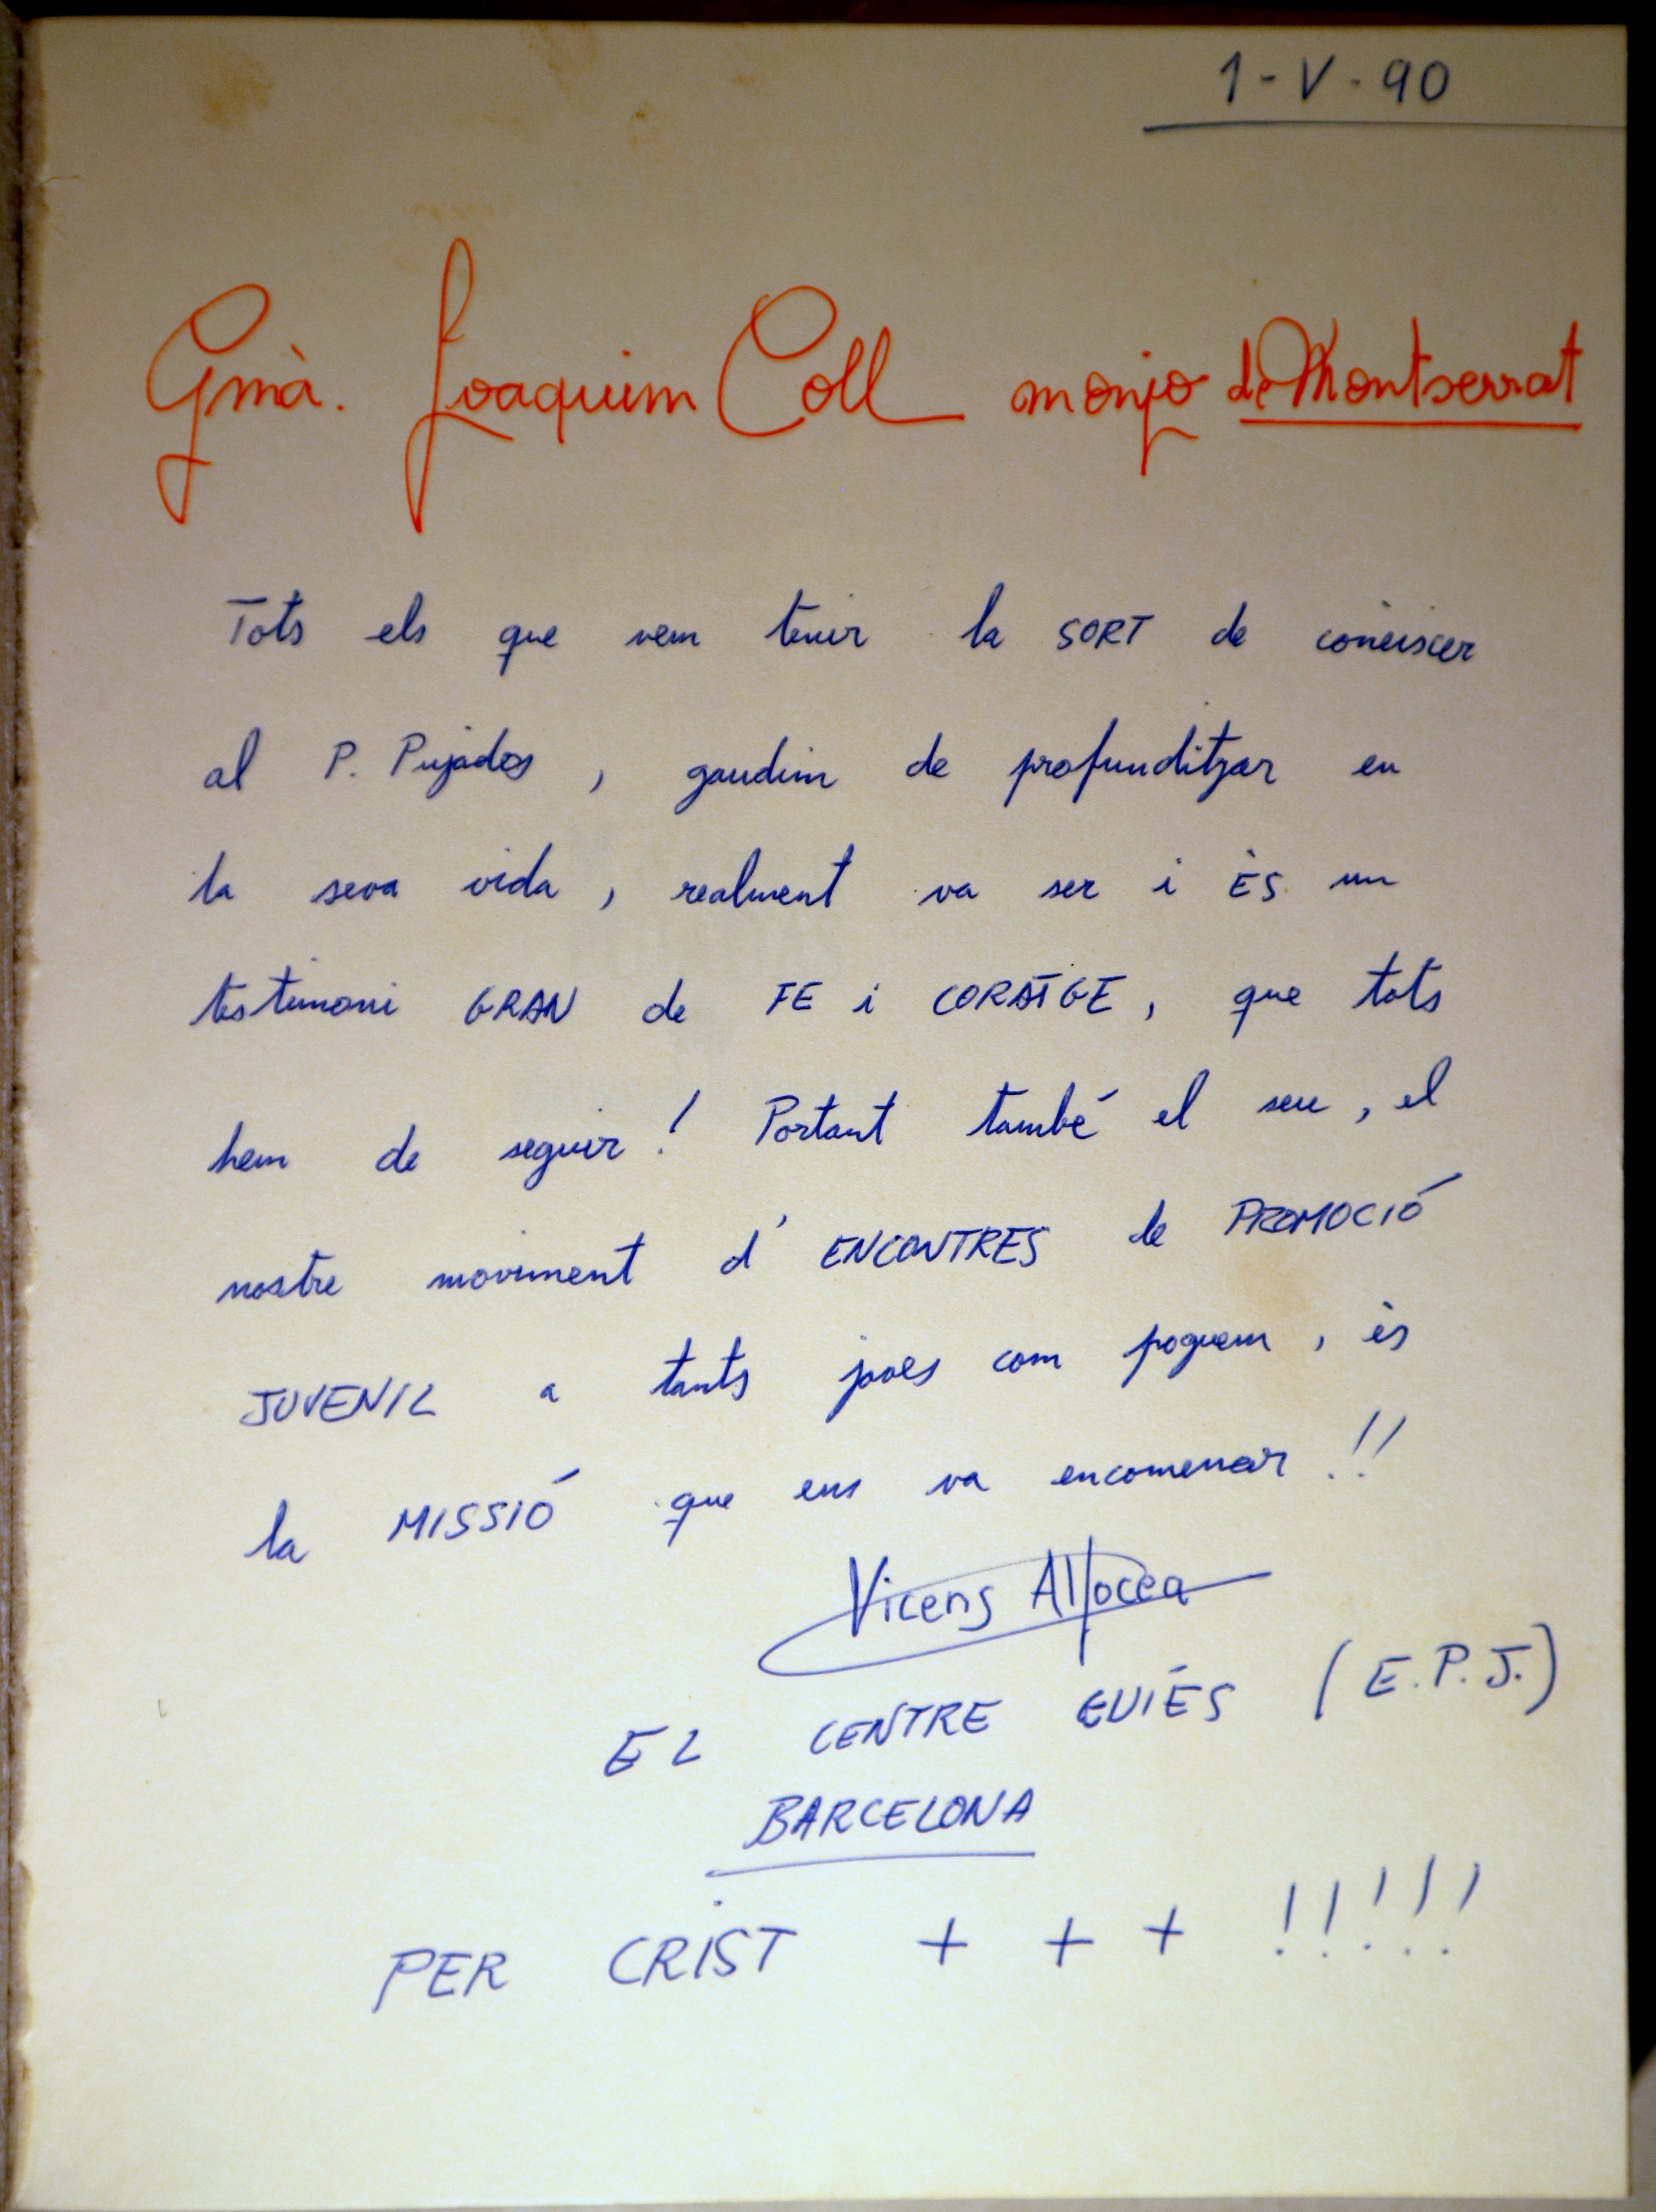 1-V-90
Gmà. Joaquim Coll monjo de Montserrat
Tots els que vem tenir la SORT de conèiscer
al P. Pujades, gaudim de profunditzar en
la seva vida, realment va ser i ÈS un
testimoni GRAN de FE i CORATGE, que tots
hem de seguir! Portant també el seu, el
nostre moviment d'ENCONTRES de PROMOCIÓ
JUVENIL a tants joves com poguem, ès
la MISSIÓ que ens va encomenar!!
Vicens
EL CENTRE GUIÉS (E.P.J.)
BARCELONA
PER CRIST + + + !!!!!